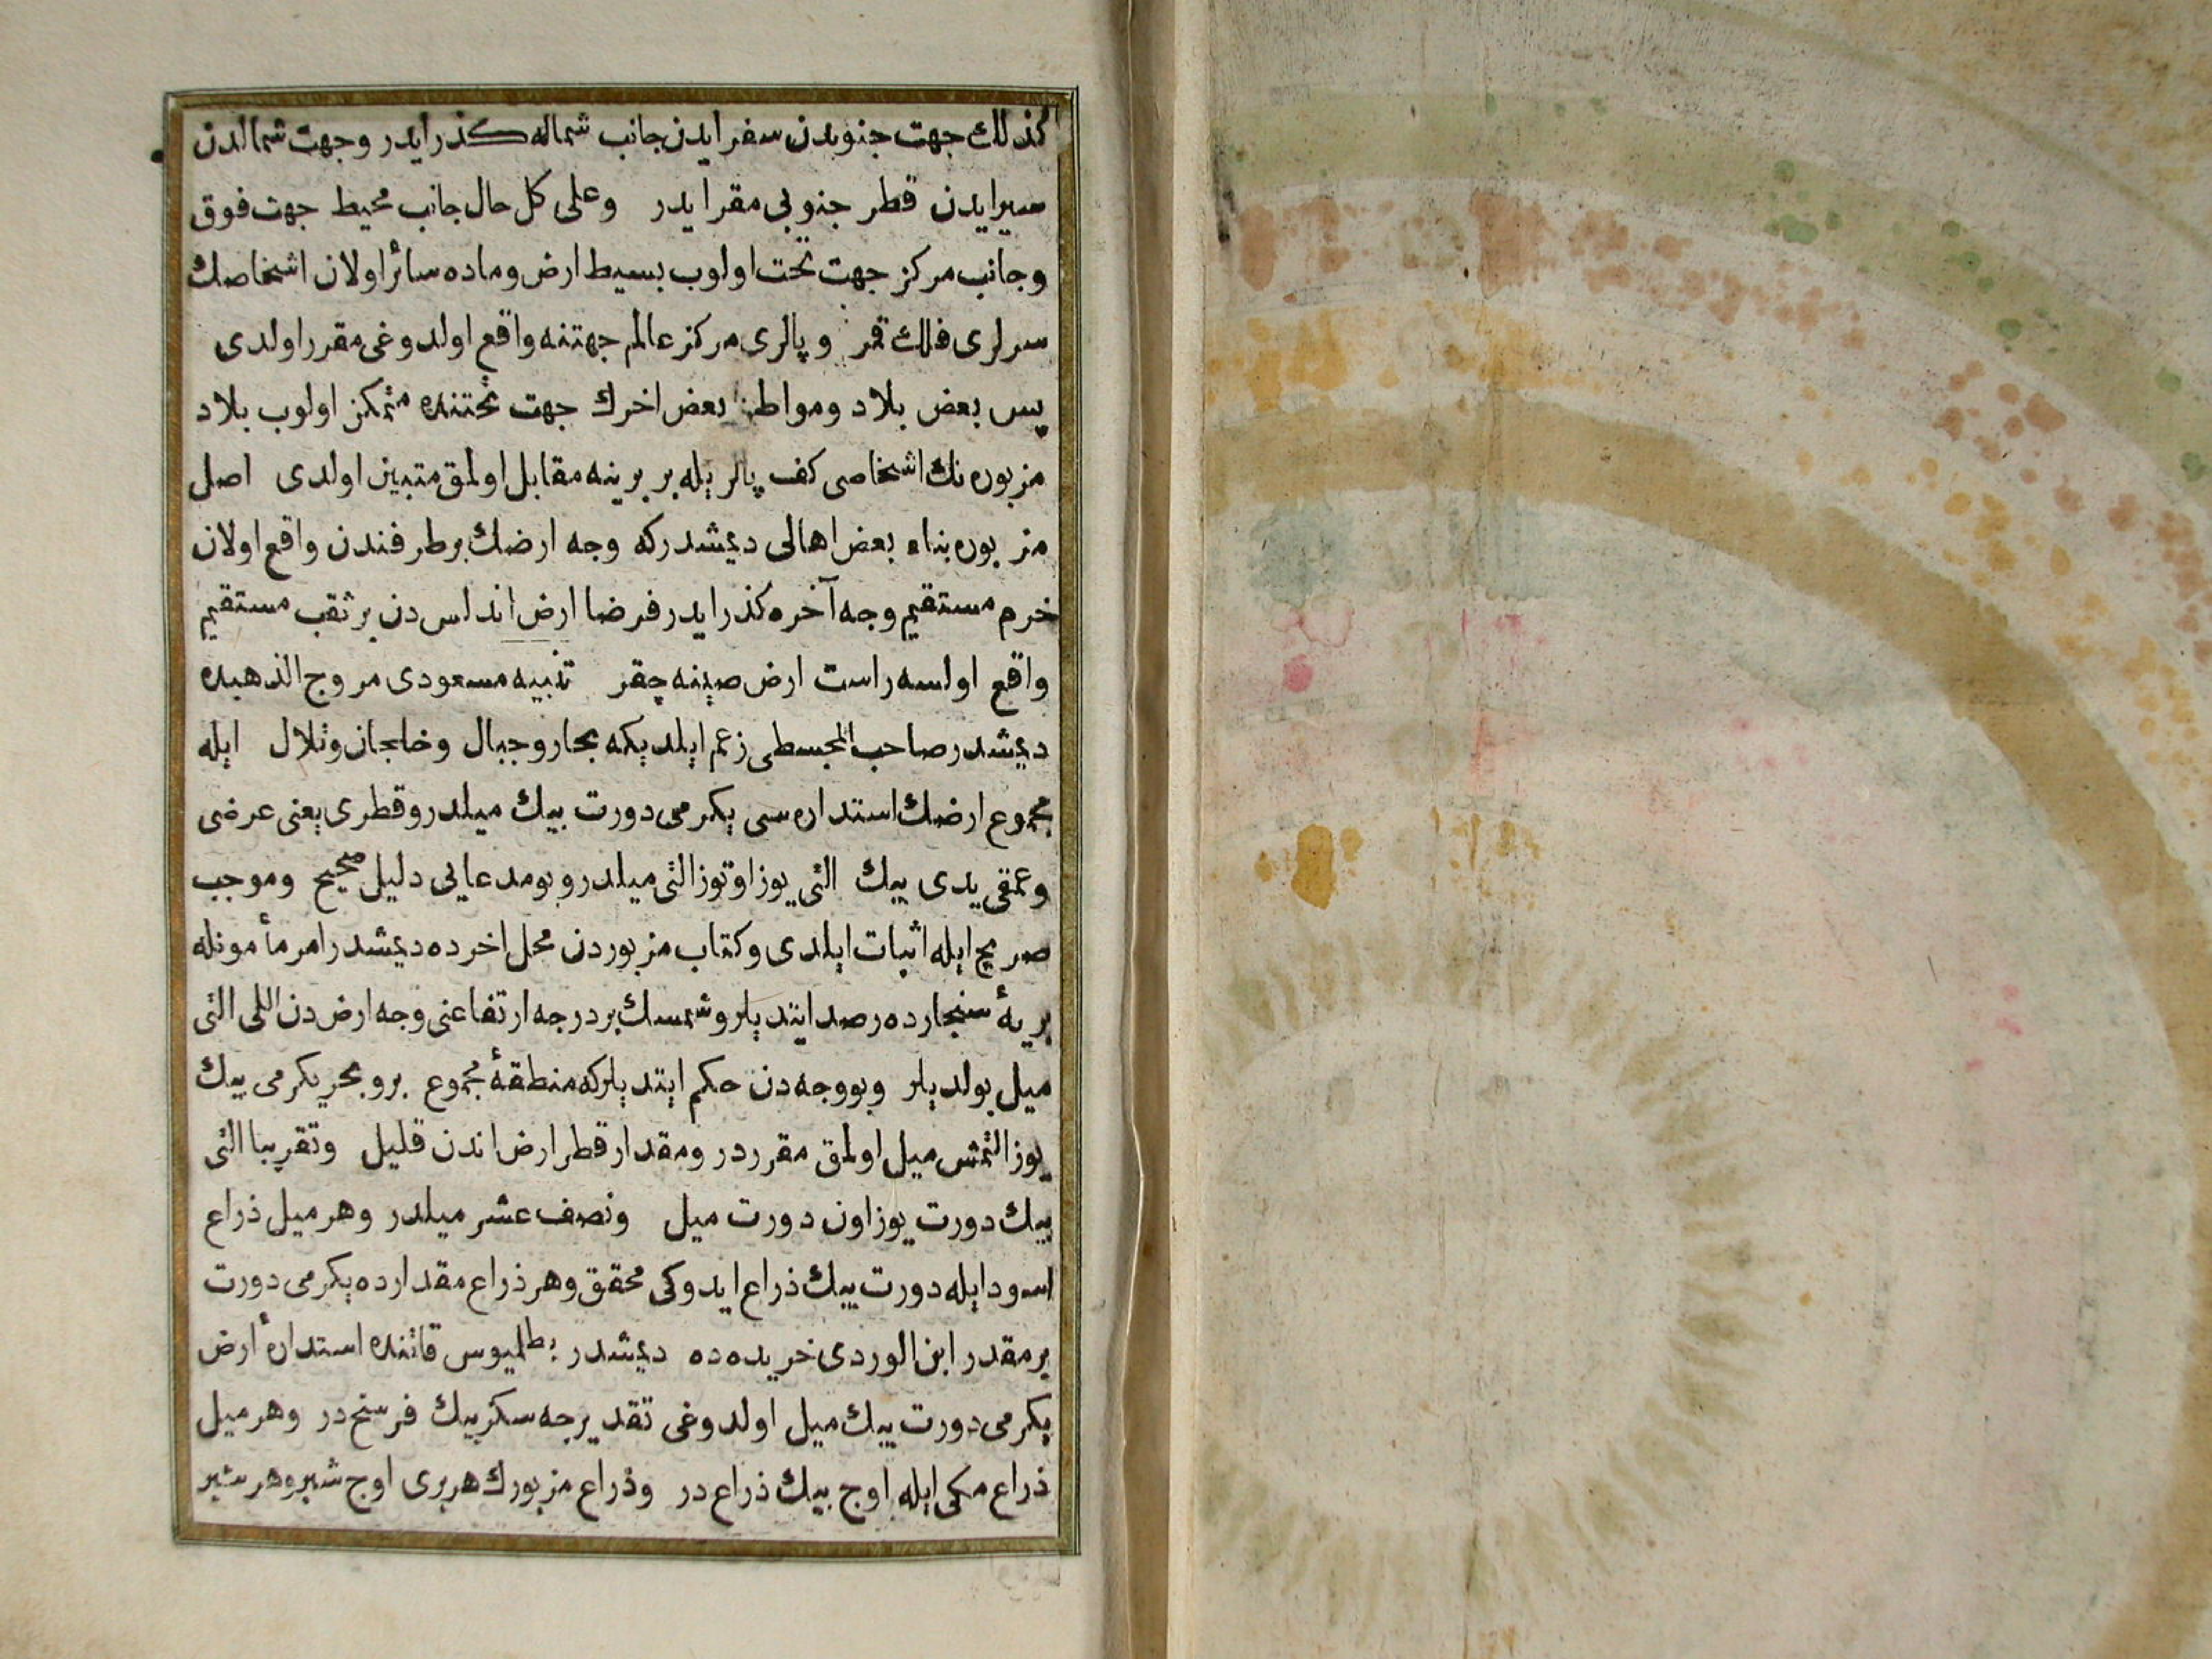 كذلك جهت جنوبدن سفر ايدن جانب شماله كذر ايدر وجهت شمالدن
سير ايدن قطر جنوبى مقر ايدر وعلى كل حال جانب محيط جهت فوق
وجانب مركز جهت تحت اولوب بسيط ارض وماده سائر اولان اشخاصك
سرلرى فلك قمر وپالرى مركز عالم جهتنه واقع اولدوغى مقرر اولدى
پس بعض بلاد ومواطن بعض اخرك جهت تحتنده متمكن اولوب بلاد
مزبوره نك اشخاصى كف پالر يله بر برينه مقابل اولمق متبين اولدى اصل
مزبوره بناء بعض اهالى ديمشدركه وجه ارضك بر طرفندن واقع اولان
خرم مستقيم وجه آخره كذر ايدر فرضا ارض اندلس دن بر ثقب مستقيم
واقع اولسه راست ارض صينه چقر تنبيه مسعودى مروج الذهبده
ديمشدر صاحب المجسطى زعم ايلديكه بحار وجبال وخلجان وتلال ايله
مجموع ارضك استداره سى يكرمى دورت بيك ميلدر وقطرى يعنى عرضى
وعمقى يدى بيك التى يوز اوتوز التى ميلدر وبو مدعايى دليل صحيح وموجب
صريح ايله اثبات ايلدى وكتاب مزبوردن محل اخرده ديمشدر امر مأمونله
بريهٔ سنجارده رصد ايتديلر وشمسك بر درجه ارتفاعنى وجه ارض دن اللى التى
ميل بولديلر وبو وجه دن حكم ايتديلركه منطقهٔ مجموع بر وبحر يكرمى بيك
يوز التمش ميل اولمق مقرردر ومقدار قطر ارض اندن قليل وتقريبا التى
بيك دورت يوز اون دورت ميل ونصف عشر ميلدر وهر ميل ذراع
اسود ايله دورت بيك ذراع ايدوكى محقق وهر ذراع مقدارده يكرمى دورت
برمقدر ابن الوردى خريده ده ديمشدر بطلميوس قاتنده استدارهٔ ارض
يكرمى دورت بيك ميل اولدوغى تقديرجه سكز بيك فرسخ در وهر ميل
ذراع مكى ايله اوچ بيك ذراع در وذراع مزبورك هربرى اوچ شبر وهر شبر